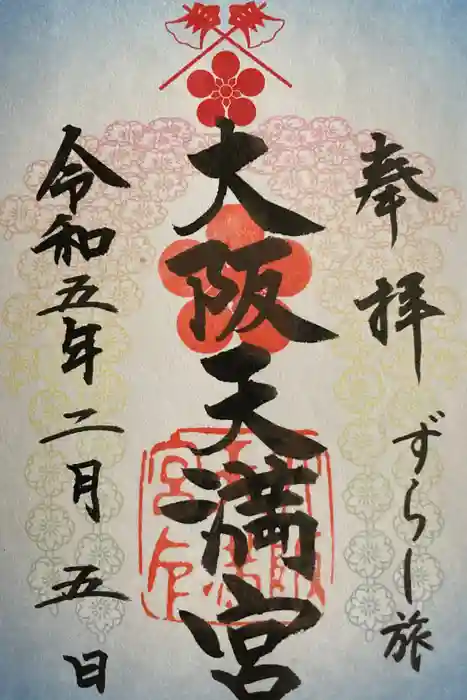 奉拝
ずらし旅
大阪天満宮
令和五年二月五日